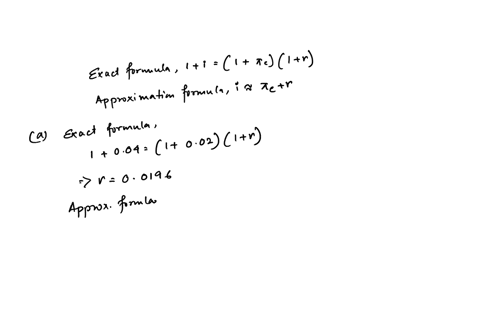 Exact formula, 1+i = (1+πe)(1+r)
Approximation formula, i ≈ πe+r
(a) Exact formula,
1 + 0.04 = (1+ 0.02)(1+r)
=> r = 0.0196
Approx. formula